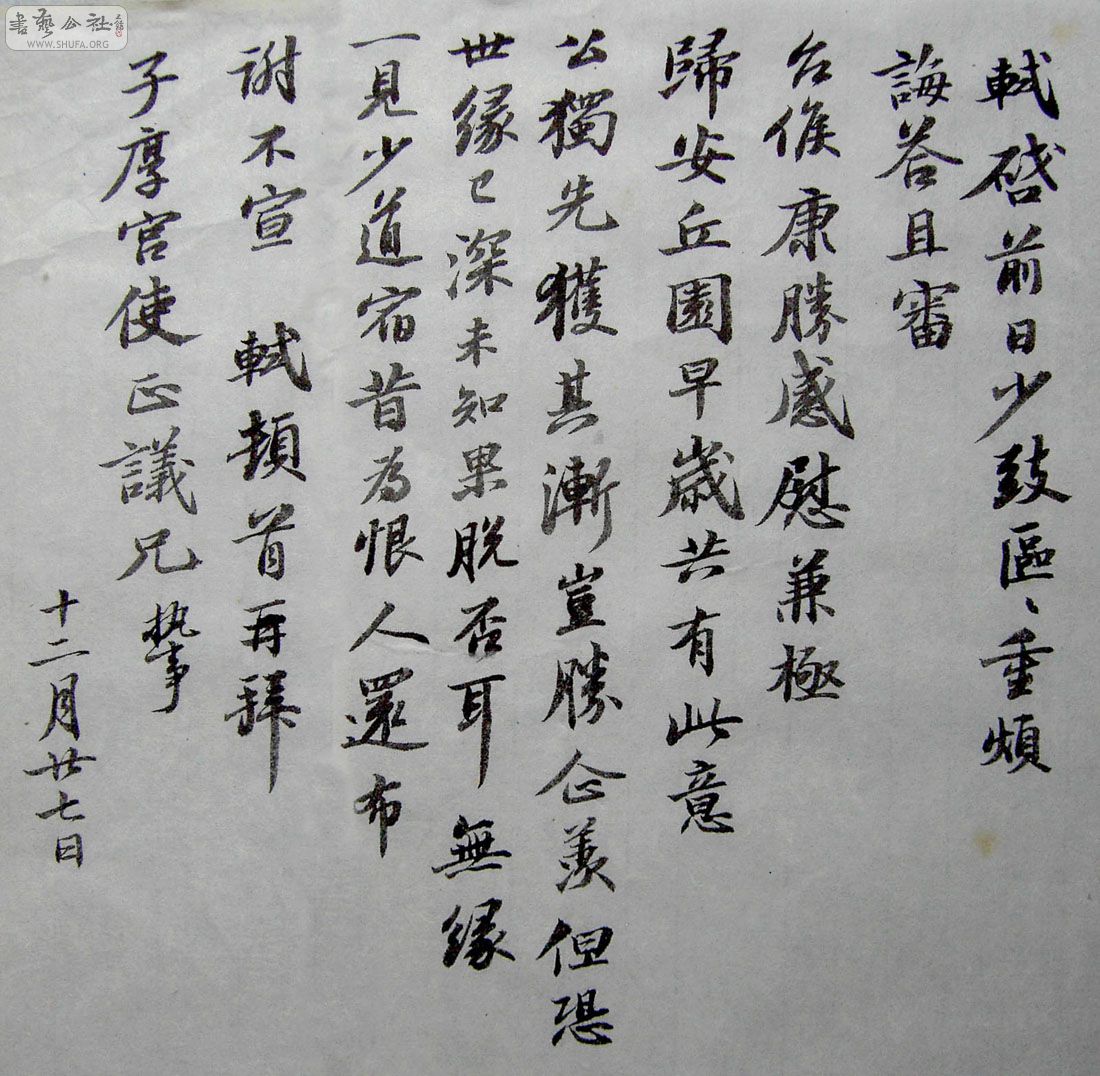 軾啓前日少致區〻重煩
誨荅且審
台候康勝感慰兼極
歸安丘園早歲共有此意
公獨先獲其漸豈勝企羨但恐
世緣已深未知果脫否耳無緣
一見少道宿昔為恨人還布
謝不宣 軾頓首再拜
子厚宮使正議兄執事
十二月廿七日
書藝公社
WWW.SHUFA.ORG